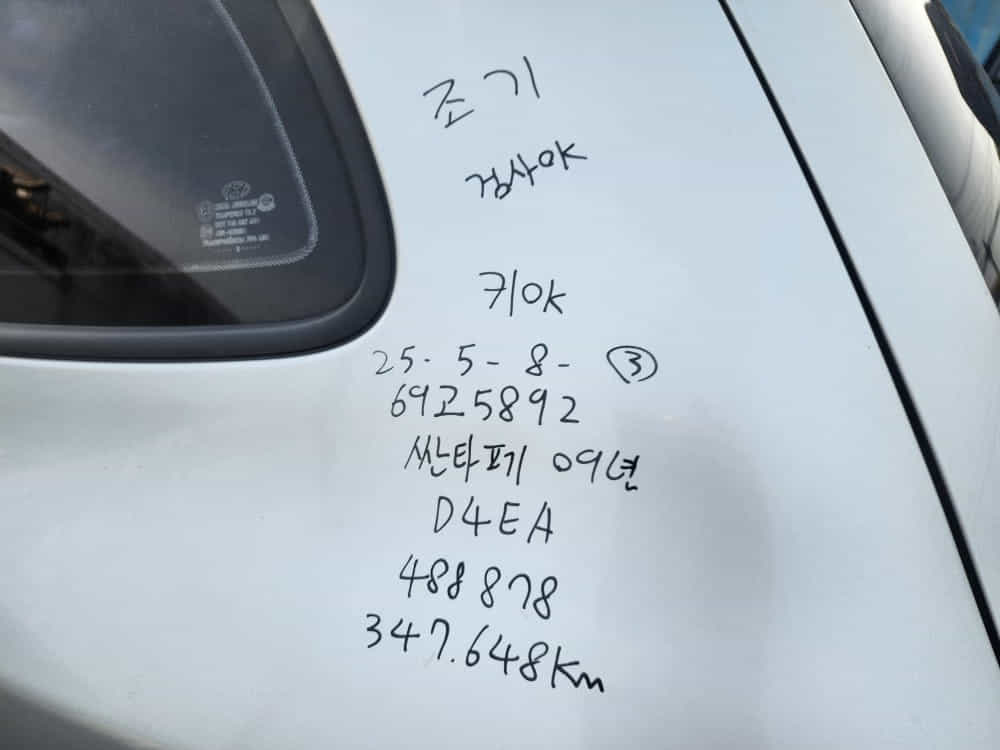 조기
검사OK
키OK
25. 5- 8- ③
69고5892
싼타페기 09년
D4EA
488878
347.648Km